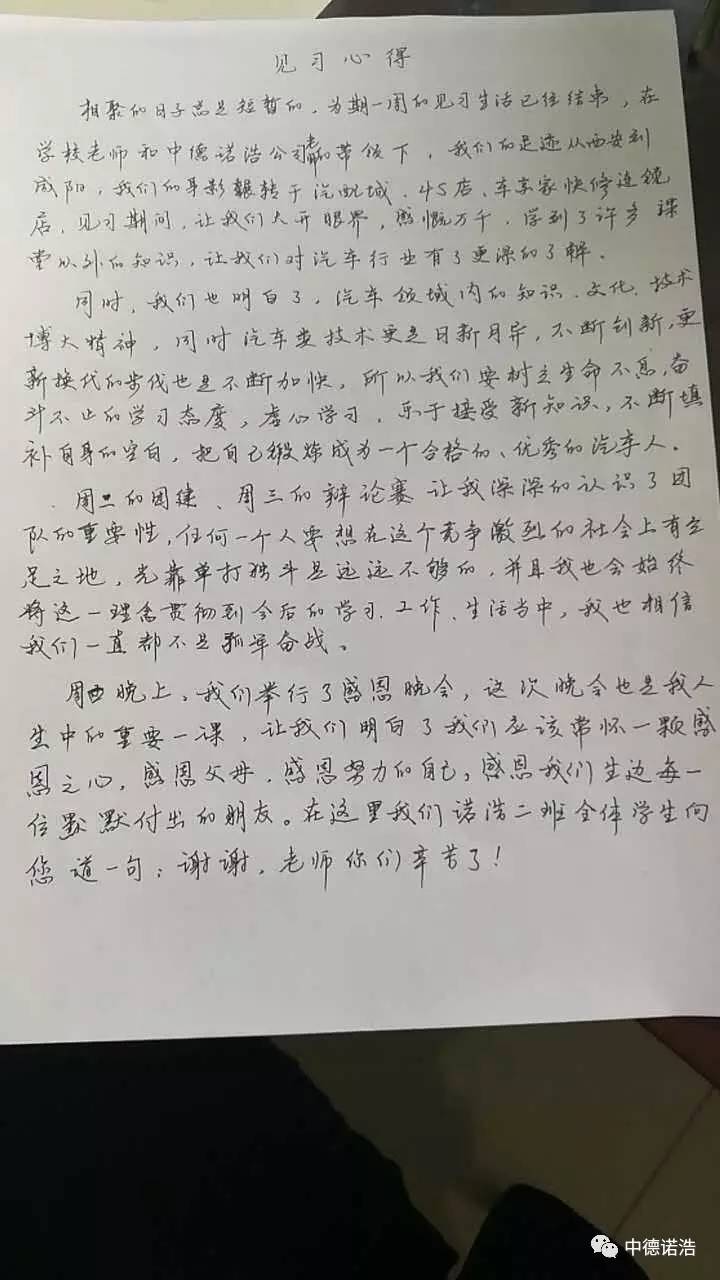 见习心得
相聚的日子总是短暂的，为期一周的见习生活已经结束，在
学校老师和中德诺浩公司老师的带领下，我们的足迹从西安到
咸阳，我们的身影辗转于汽配城、4S店、车享家快修连锁
店，见习期间，让我们大开眼界，感慨万千，学到了许多课
堂以外的知识，让我们对汽车行业有了更深的了解。
同时，我们也明白了，汽车领域内的知识、文化、技术
博大精神，同时汽车类技术更是日新月异，不断创新，更
新换代的步伐也是不断加快，所以我们要树立生命不息，奋
斗不止的学习态度，虚心学习，乐于接受新知识，不断填
补自身的空白，把自己锻炼成为一个合格的、优秀的汽车人。
周二的团建、周三的辩论赛让我深深的认识了团
队的重要性，任何一个人要想在这个竞争激烈的社会上有立
足之地，光靠单打独斗是远远不够的，并且我也会始终
将这一理念贯彻到今后的学习、工作、生活当中，我也相信
我们一直都不是孤军奋战。
周四晚上，我们举行了感恩晚会，这次晚会也是我人
生中的重要一课，让我们明白了我们应该常怀一颗感
恩之心，感恩父母，感恩努力的自己，感恩我们生边每一
位默默付出的朋友。在这里我们诺浩二班全体学生向
您道一句：谢谢，老师你们辛苦了！
中德诺浩